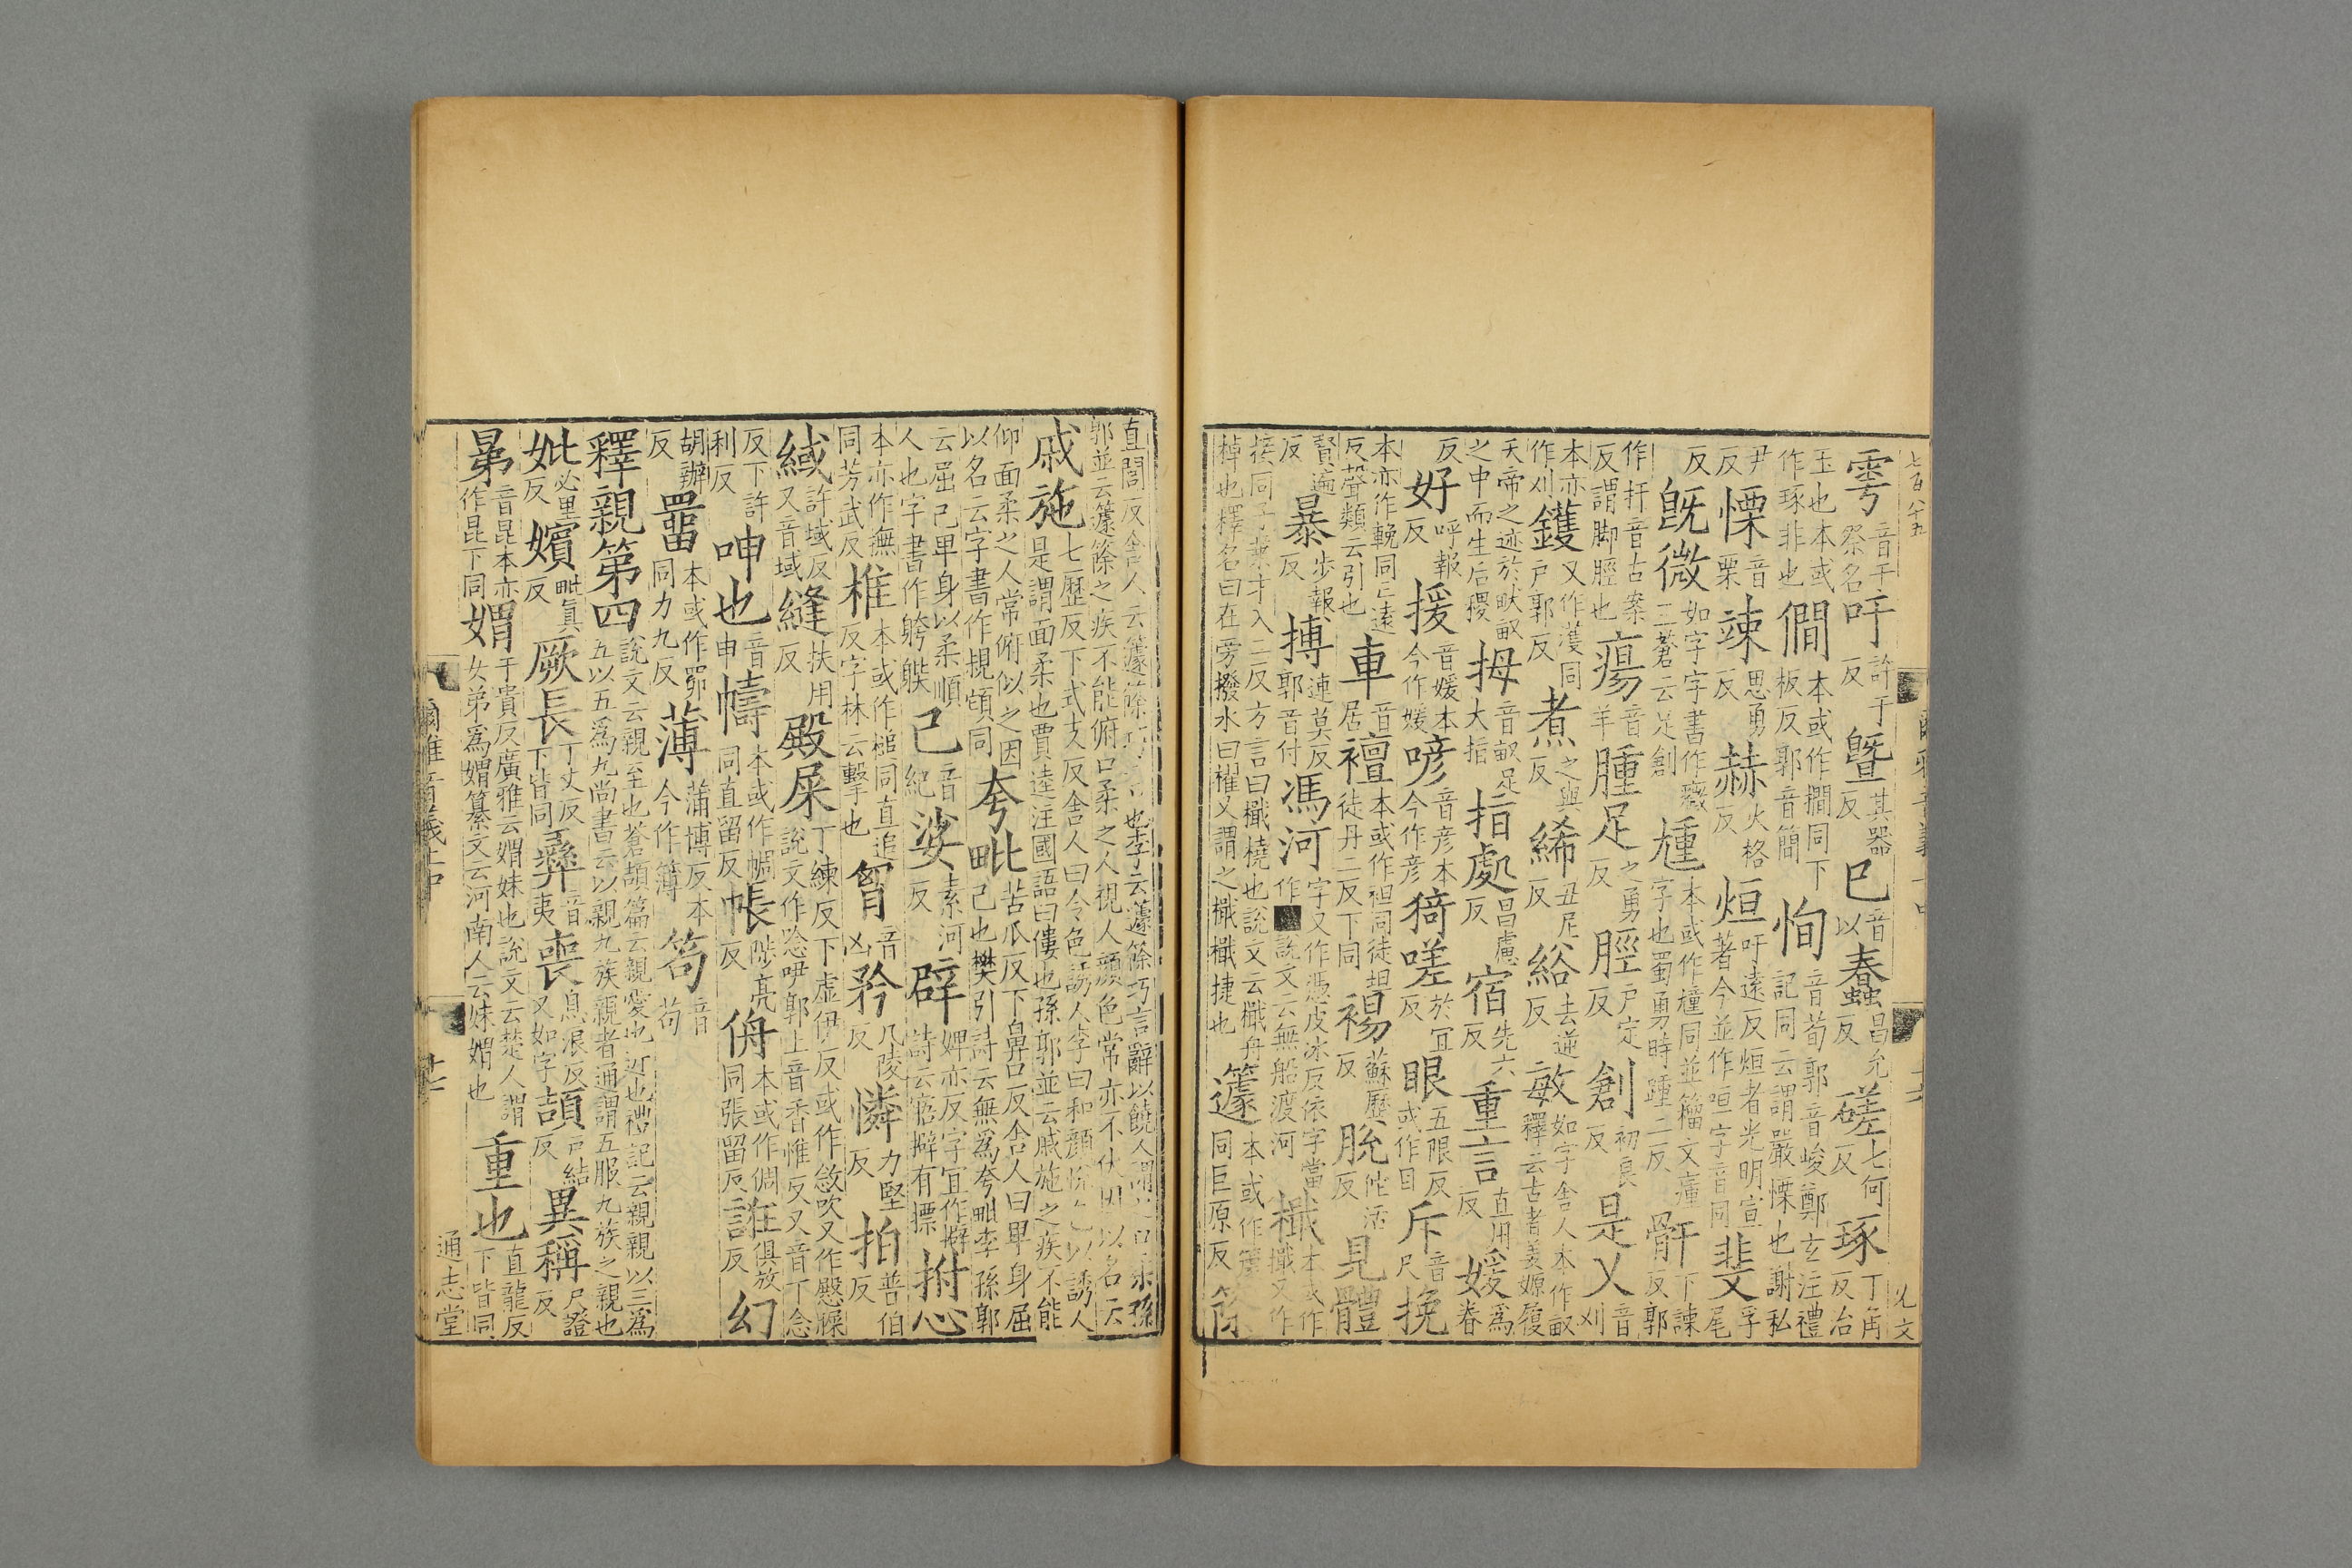 雩音于祭名吁許于反曁其器反巳音以蠢昌允反磋七何反琢丁角反治
玉也本或作琢非也僩本或作撊同下板反郭音簡恂音荀郭音峻鄭玄注禮記同云謂嚴慄也謝私
尹反慄音栗竦思勇反赫火格反烜吁遠反烜者光明宣著今並作咺字音同斐孚尾
反旣微如字字書作癓三蒼云足創尰本或作𤺄同並籀文瘇字也蜀勇時踵二反骭下諫反郭
作扞音古案反謂脚脛也瘍音羊腫足之勇反脛戸定反創初良反是乂音刈
本亦作刈鑊又作濩同戸郭反煮之與反絺丑尼反綌去逆反敏如字舍人本作畝釋云古者姜嫄履
天帝之迹於畎畝之中而生后稷拇音畝足大指指處昌慮反宿先六反重言直用反媛爲眷
反好呼報反援音媛本今作媛喭音彦本今作彦猗嗟於宜反眼五限反或作目斥音尺挽
本亦作輓同亡遠反聲類云引也車音居襢本或作袒同徒坦徒丹二反下同裼蘇歷反脫佗活反見體
賢遍反暴步報反搏連莫反郭音付馮河字又作憑皮冰反依字當作■說文云無船渡河檝本或作檝又作
接同子葉才入二反方言曰檝橈也說文云檝舟棹也釋名曰在旁撥水曰櫂又謂之檝檝捷也籧本或作蘧同巨原反篨
直閭反舍人云籧篨巧言也李云籧篨巧言辭以饒人謂之口柔孫
郭並云籧篨之疾不能俯口柔之人視人顔色常亦不伏因以名云
戚施七歷反下式支反舍人曰令色誘人李曰和顔悅色以誘人是謂面柔也賈逵注國語曰僂也孫郭並云戚施之疾不能
仰面柔之人常俯似之因以名云字書作䙾䫌同夸毗苦瓜反下鼻口反舍人曰卑身屈己也樊引詩云無爲夸毗李孫郭
云屈己卑身以柔順人也字書作舿躾己音紀娑素河反辟婢亦反字宜作擗詩云寤擗有摽拊心
本亦作撫同芳武反椎本或作槌同直追反字林云擊也胷音凶矜几陵反憐力堅反拍普伯反
緎許域反又音域縫扶用反殿屎丁練反下虛伊反或作敜吹又作慇𦡀說文作唸㕧郭上音香惟反又音丁念
反下許利反呻也音申幬本或作㡡同直留反帳陟亮反侜本或作倜同張留反誑俱放反幻
胡辦反罶本或作䍡同力九反薄蒲博反本今作簿笱音苟
釋親第四說文云親至也蒼頡篇云親愛也近也禮記云親親以三爲五以五爲九尚書云以親九族親者通謂五服九族之親也
妣必里反嬪毗眞反厥長丁丈反下皆同彝音夷喪息浪反又如字頡戸結反異稱尺證反
晜音昆本亦作昆下同媦于貴反廣雅云媦妹也說文云楚人謂女弟爲媦纂文云河南人云妹媦也重也直龍反下皆同
通志堂